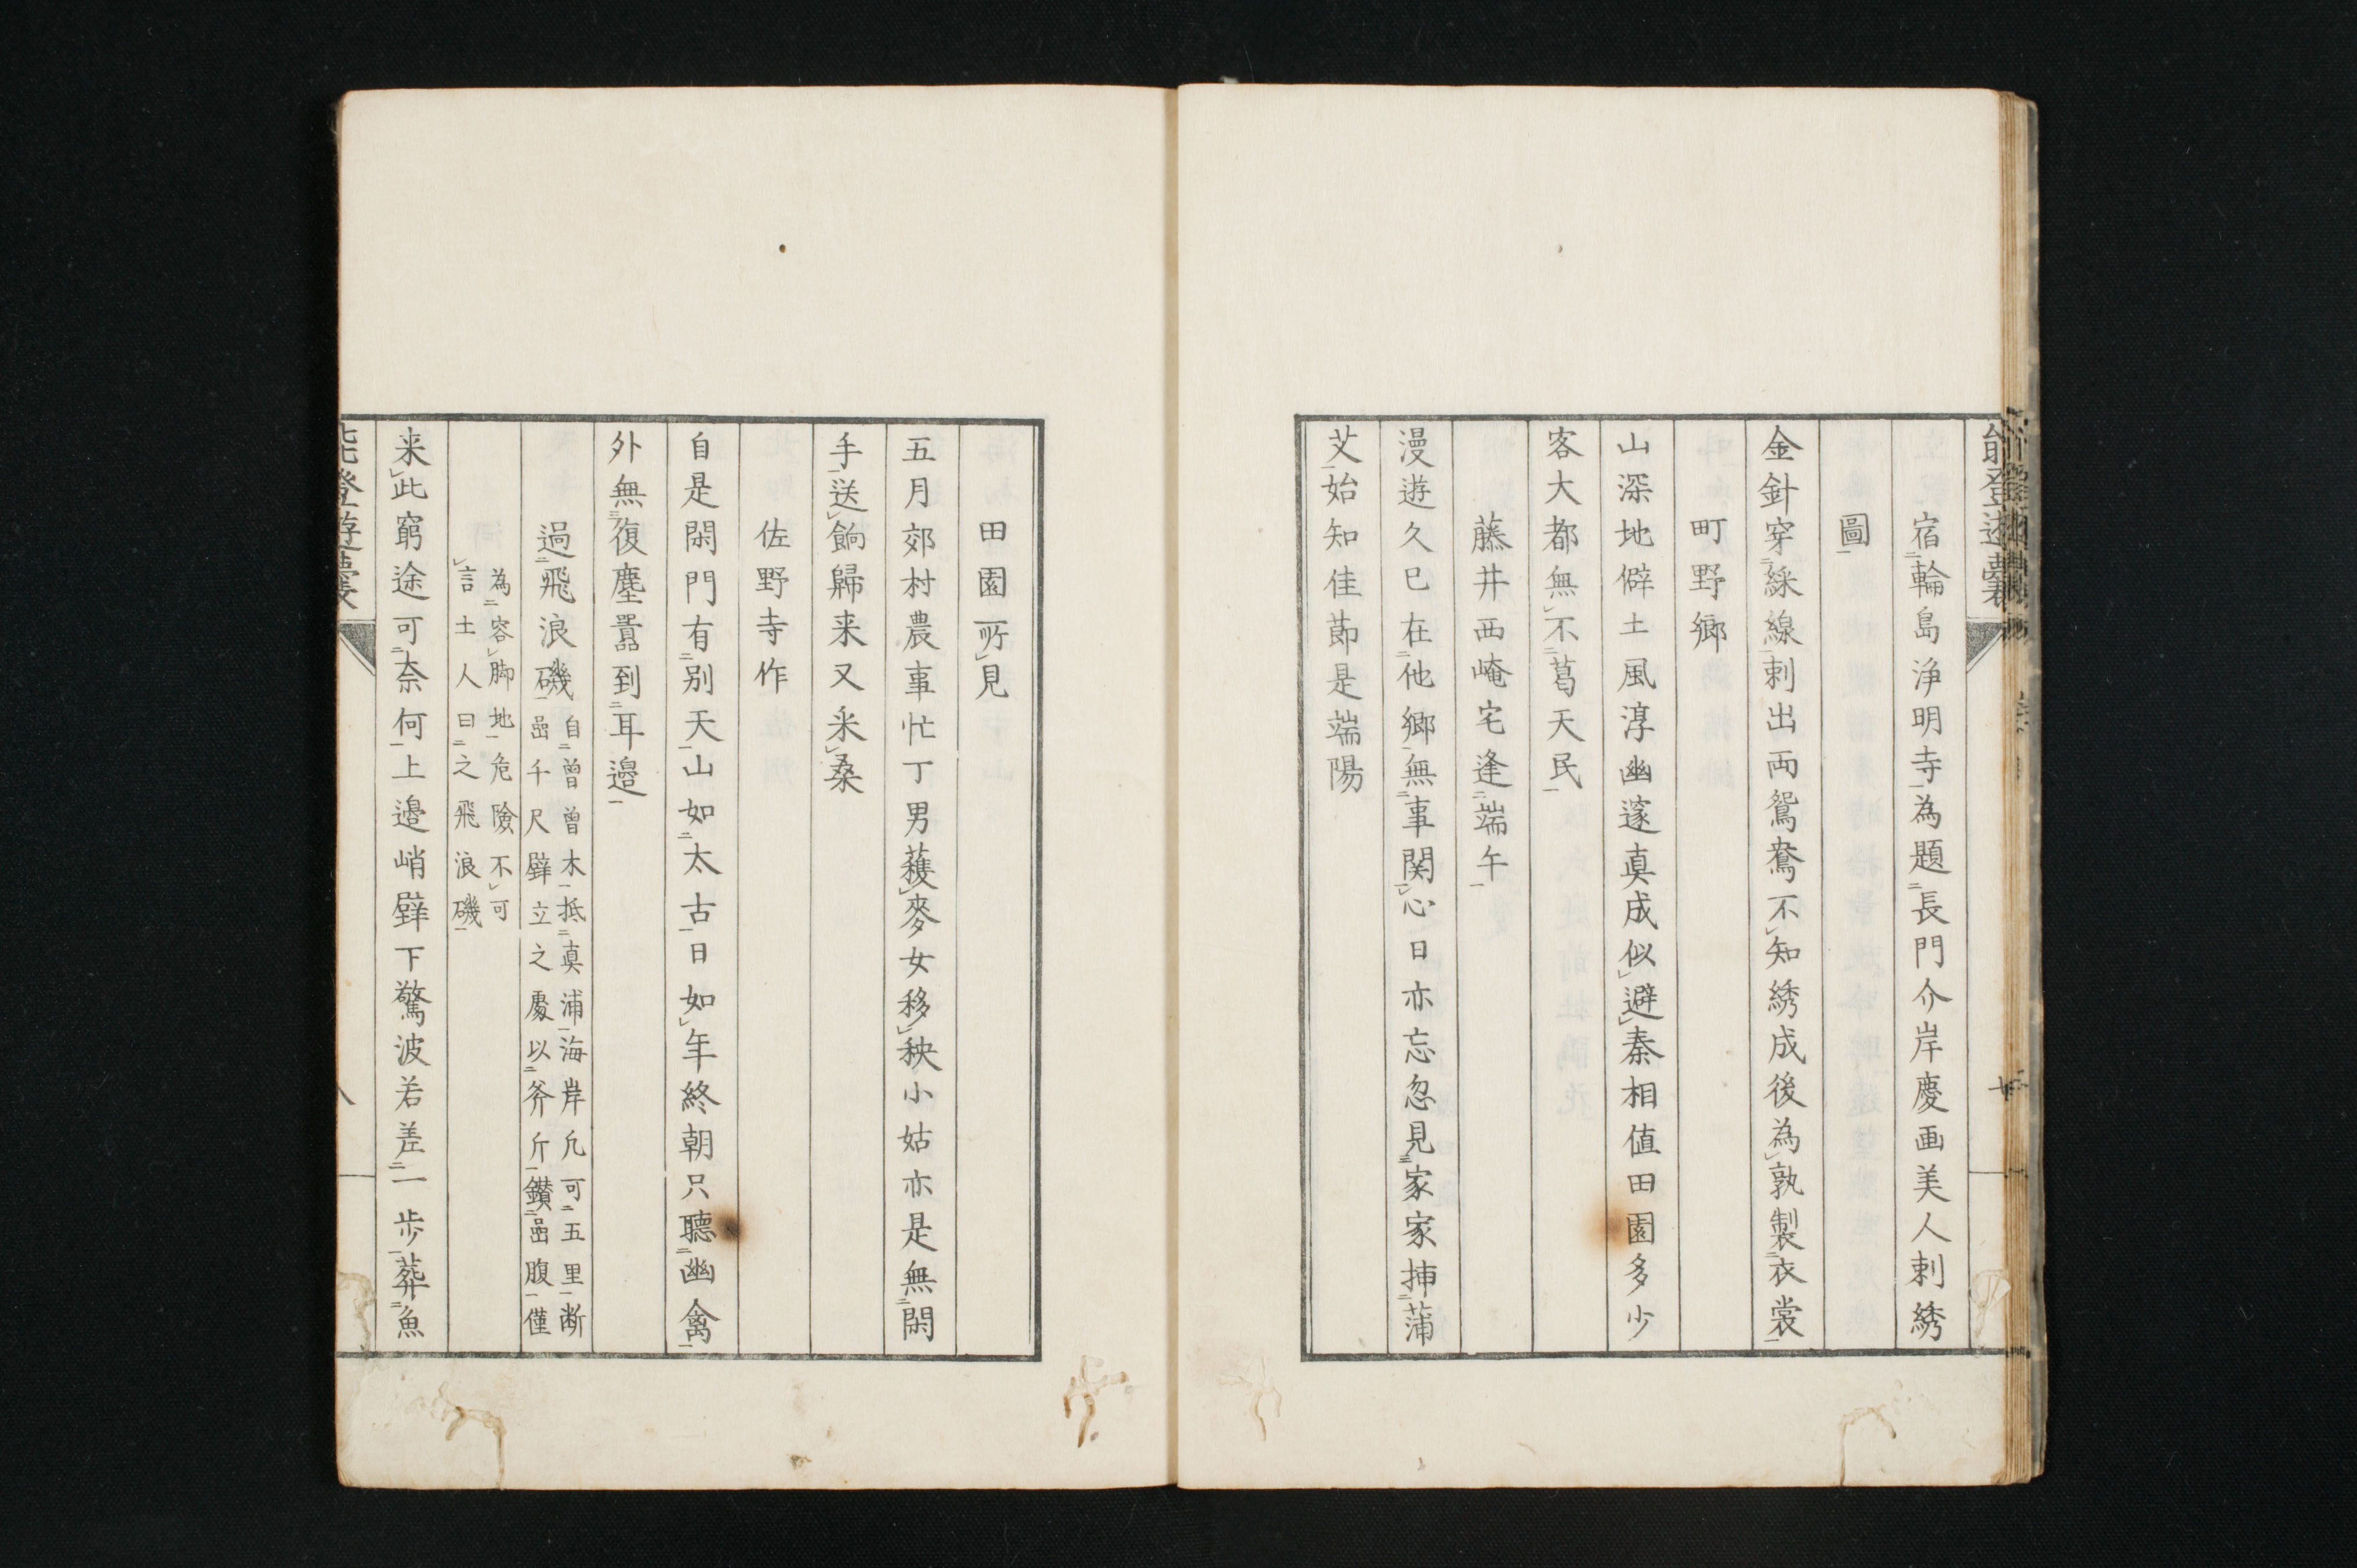 宿輪島浄明寺為題長門介岸慶画美人刺綉
圖
金針穿綵線刺出両鴛鴦不知綉成後為孰製衣裳
町野郷
山深地僻土風淳幽邃真成似避秦相值田園多少
客大都無不葛天民
藤井西崦宅逢端午
漫遊久已在他郷無事関心日亦忘忽見家家挿蒲
艾始知佳節是端陽
田園所見
五月郊村農事忙丁男穫麥女移秧小姑亦是無閑
手送餉歸来又采桑
佐野寺作
自是閑門有別天山如太古日如年終朝只聽幽禽
外無復塵囂到耳邉
過飛浪磯
自曽曽木抵真浦海岸凢可五里断
嵒千尺壁立之處以斧斤鑚嵒腹僅
為容脚地危険不可
言土人曰之飛浪磯
来此窮途可奈何上邉峭壁下驚波若差一歩葬魚